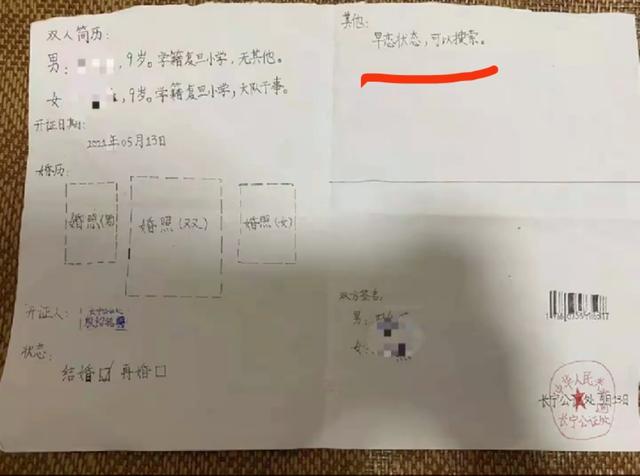 双人简历:
男: ,9岁。学籍复旦小学,无其他。
女 ,9岁。学籍复旦小学,大队干事。
开证日期:
2021年05月13日
婚历:
婚照(男)
婚照(双)
婚照(女)
开证人:
状态:
结婚☑ 再婚□
其他:
早恋状态,可以搜索。
双方签名:
男:
女:
中华人民
长宁公 处 月13日
长宁公证处